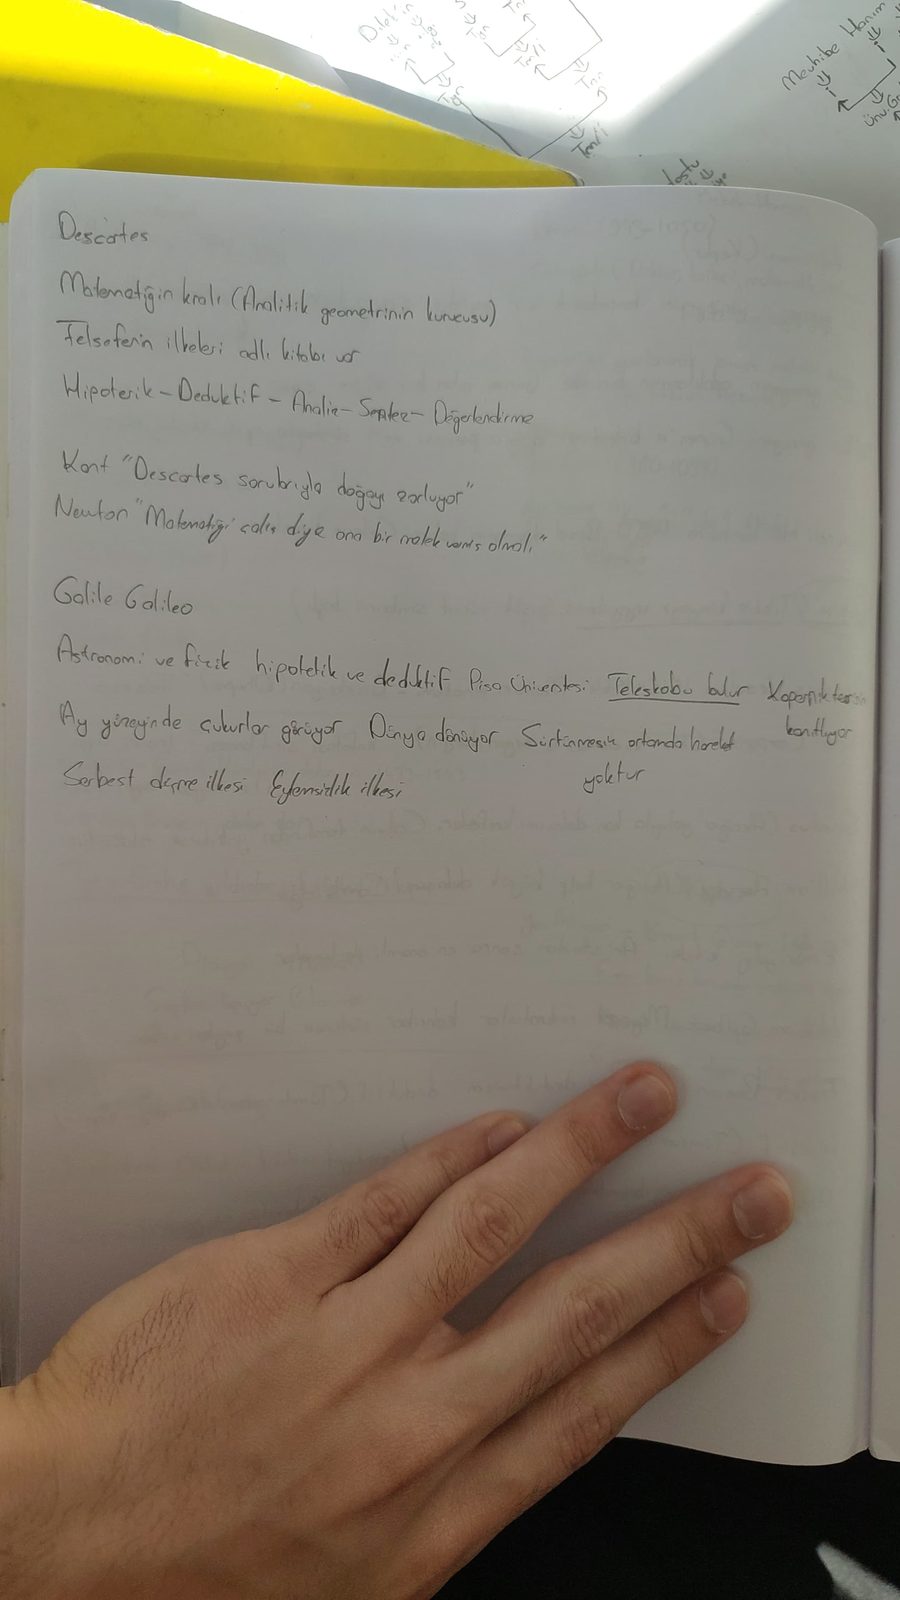 Dilek
Mevhibe Hanım
İzmir
Descartes
Matematiğin kralı (Analitik geometrinin kurucusu)
Felsefenin ilkeleri adlı kitabı var
Hipotetik – Deduktif – Analiz – Sentez – Değerlendirme
Kant "Descartes sorularıyla doğayı zorluyor"
Newton "Matematiği çalış diye ona bir melek vermiş olmalı"
Galile Galileo
Astronomi ve fizik hipotetik ve deduktif Pisa Üniversitesi Teleskobu bulur Kopernik tezini
kanıtlıyor
Ay yüzeyinde çukurlar görüyor Dünya dönüyor Sürtünmesiz ortamda hareket
yoktur
Serbest düşme ilkesi Eylemsizlik ilkesi